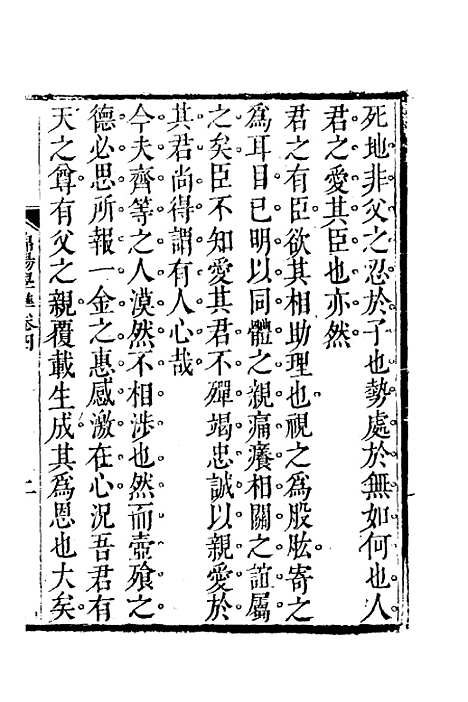 死地非父之忍於子也勢處於無如何也人
君之愛其臣也亦然
君之有臣欲其相助理也視之為股肱寄之
為耳目已明以同體之親痛癢相關之誼屬
之矣臣不知愛其君不殫竭忠誠以親愛於
其君尚得謂有人心哉
今夫齊等之人漠然不相涉也然而壺飱之
德必思所報一金之惠感激在心況吾君有
天之尊有父之親覆載生成其為恩也大矣
卷四